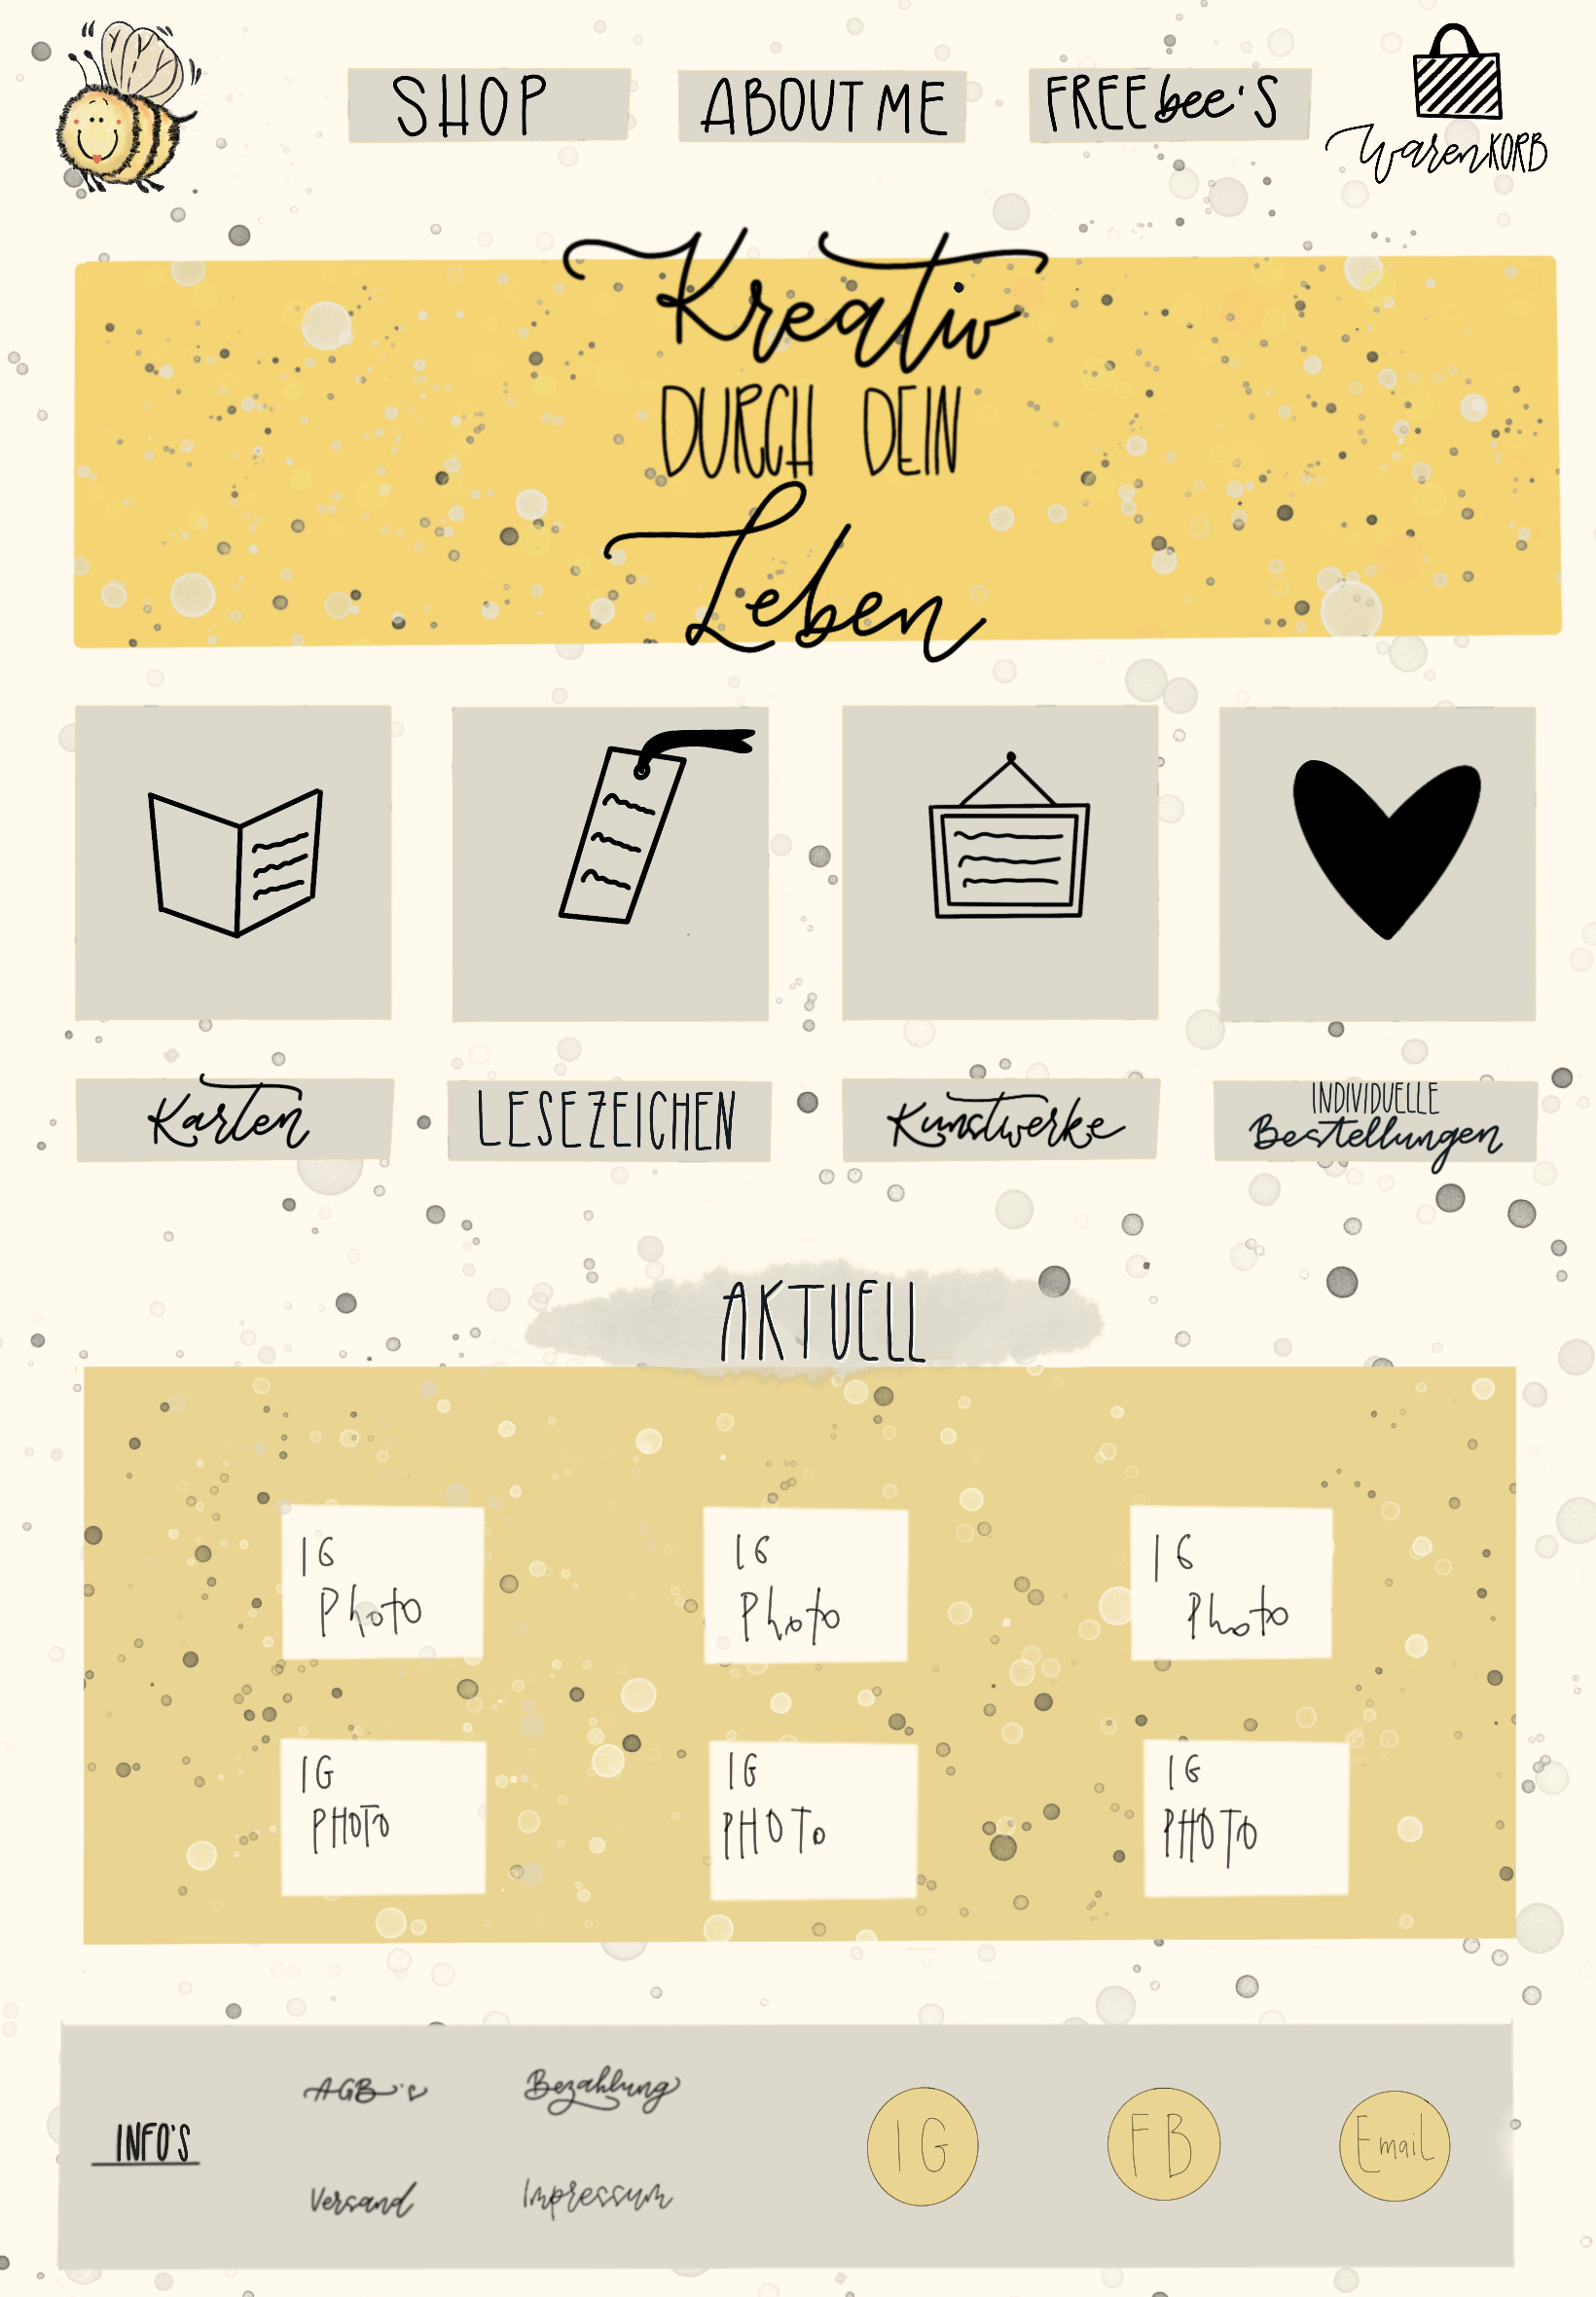 SHOP
ABOUT ME
FREEbee's
WarenKORB
Kreativ
DURCH DEIN
Leben
Karten
LESEZEICHEN
Kunstwerke
INDIVIDUELLE
Bestellungen
AKTUELL
IG
Photo
IG
Photo
IG
Photo
IG
PHOTO
IG
PHOTo
IG
PHOTO
INFO'S
AGB's
Bezahlung
Versand
Impressum
IG
FB
Email